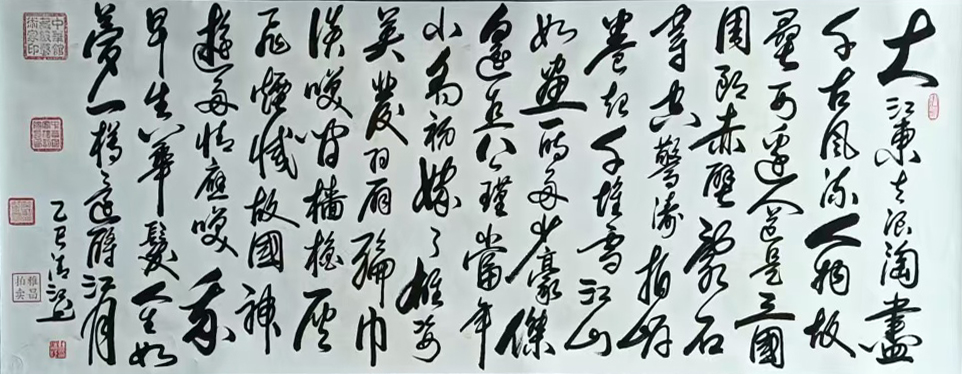 大江東去浪淘盡
千古風流人物故
壘西邊人道是三國
周郎赤壁亂石
穿空驚濤拍岸
卷起千堆雪江山
如畫一時多少豪傑
遙想公瑾當年
小喬初嫁了雄姿
英發羽扇綸巾
談笑間檣櫓灰
飛煙滅故國神
遊多情應笑我
早生華髮人生如
夢一樽還酹江月
乙巳
雅昌拍卖